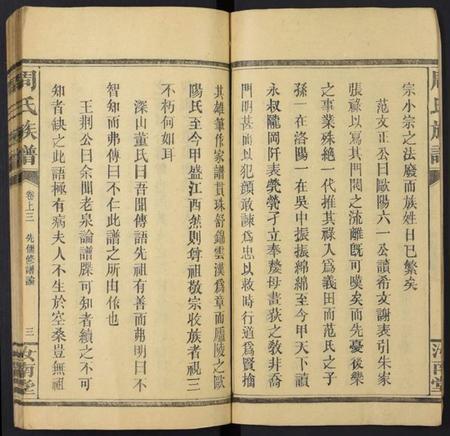 宗小宗之法廢而族姓日已繁矣
范文正公曰歐陽六一公讀希文謝表引朱家
張祿以寫其門閥之流離既可嘆矣而先憂後樂
之事業殊絕一代推其祿入爲義田而范氏之子
孫一在洛陽一在吳中振振綿綿至今甲天下讀
永叔隴岡阡表煢煢孑立奉嫠母畫荻之敎井喬
門明甚而以犯顏敢諫爲忠以救時行道爲賢摛
其雄筆作家譜貫珠舒錦雲漢爲章而廬陵之歐
陽氏至今甲盛江西然則尊祖敬宗收族者視三
不朽何如耳
深山董氏曰吾聞傳語先祖有善而弗明曰不
智知而弗傳曰不仁此譜之所由作也
王荆公曰余聞老泉論譜牒可知者續之不可
知者缺之此語極有病夫人不生於空桑豈無祖
周氏族譜
卷上三
先儒修譜論
三
汝南堂